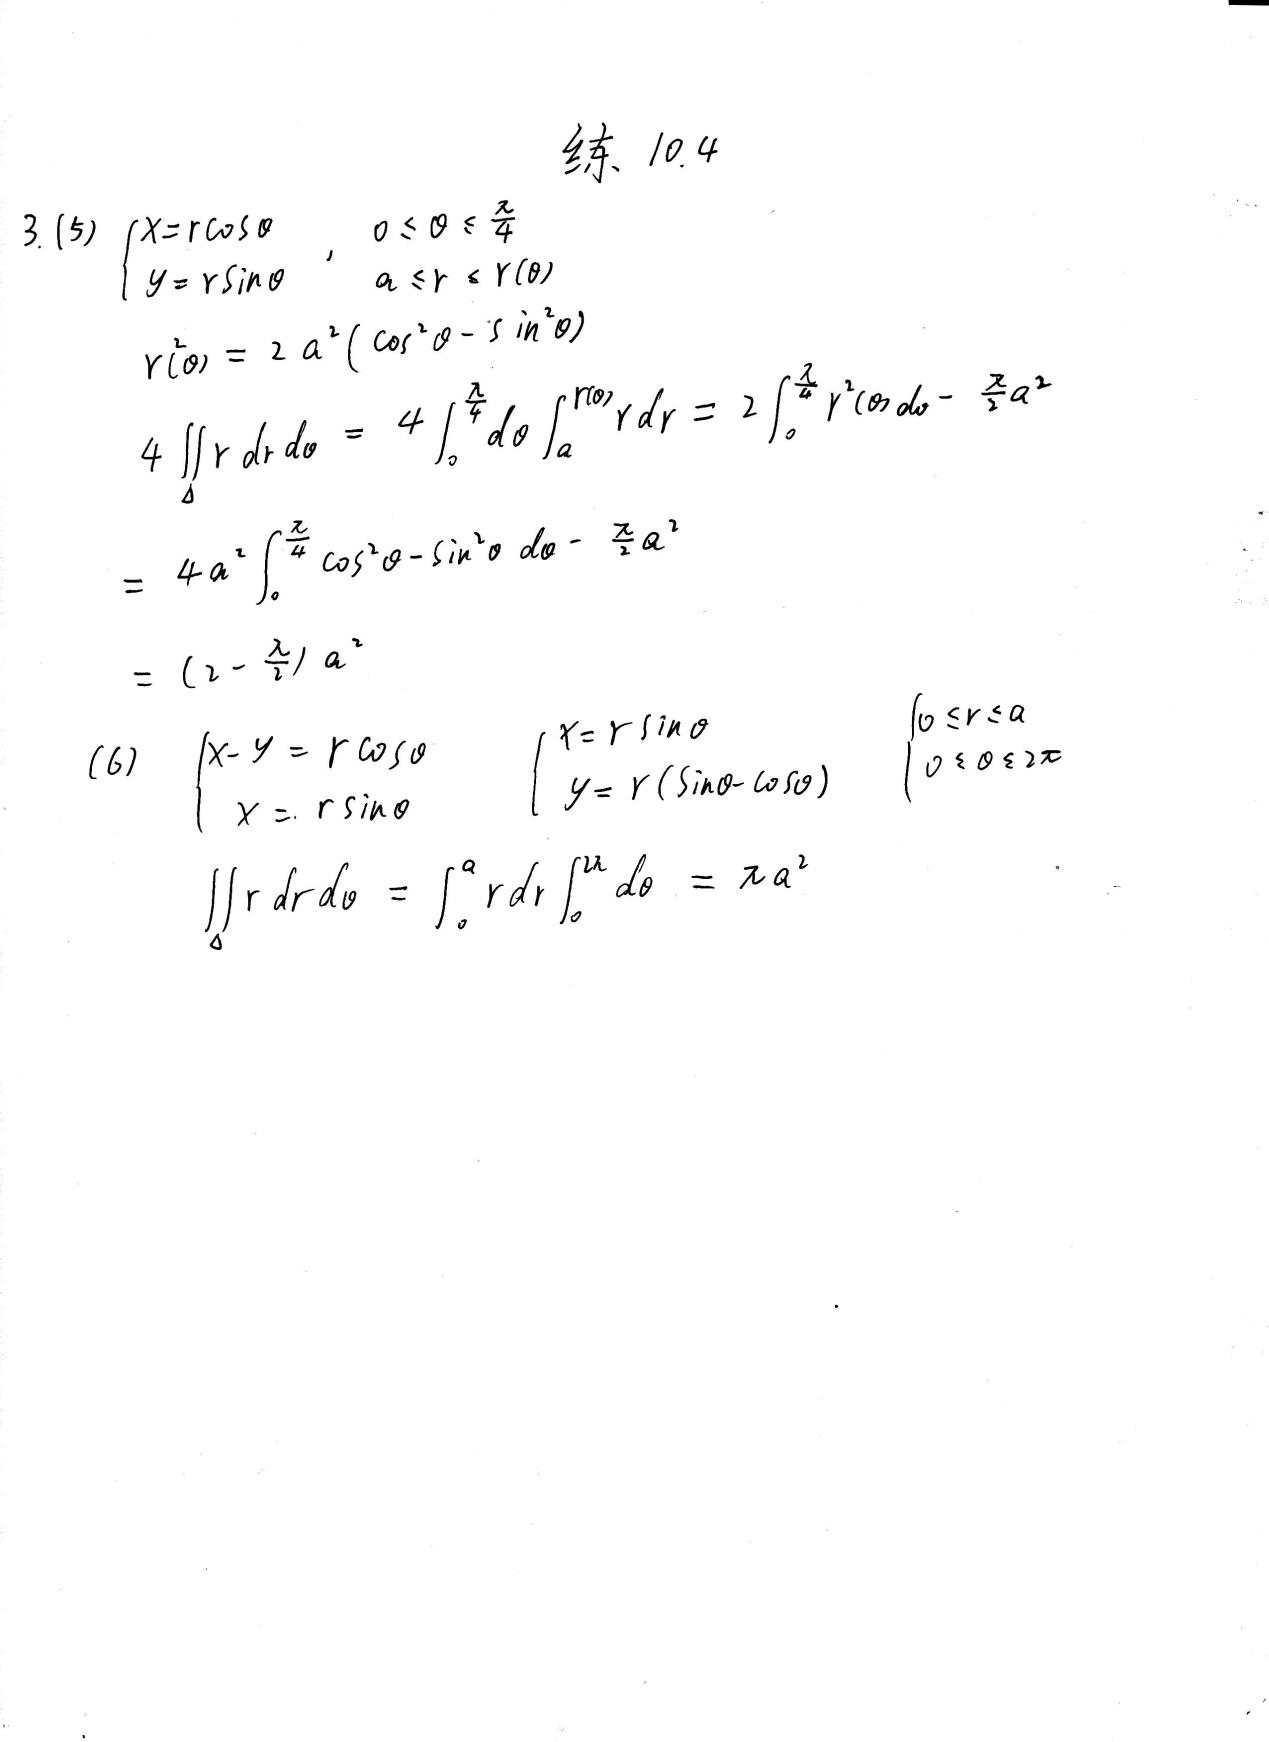 练 10.4
3. (5) { x = r cosθ , 0 ≤ θ ≤ π/4
y = r sinθ a ≤ r ≤ r(θ)
r²(θ) = 2a²(cos²θ - sin²θ)
4 ∬_Δ r dr dθ = 4 ∫_0^{π/4} dθ ∫_a^{r(θ)} r dr = 2 ∫_0^{π/4} r²(θ) dθ - π/2 a²
= 4a² ∫_0^{π/4} cos²θ - sin²θ dθ - π/2 a²
= (2 - π/2) a²
(6) { x - y = r cosθ { x = r sinθ { 0 ≤ r ≤ a
x = r sinθ y = r(sinθ - cosθ) 0 ≤ θ ≤ 2π
∬_Δ r dr dθ = ∫_0^a r dr ∫_0^{2π} dθ = πa²